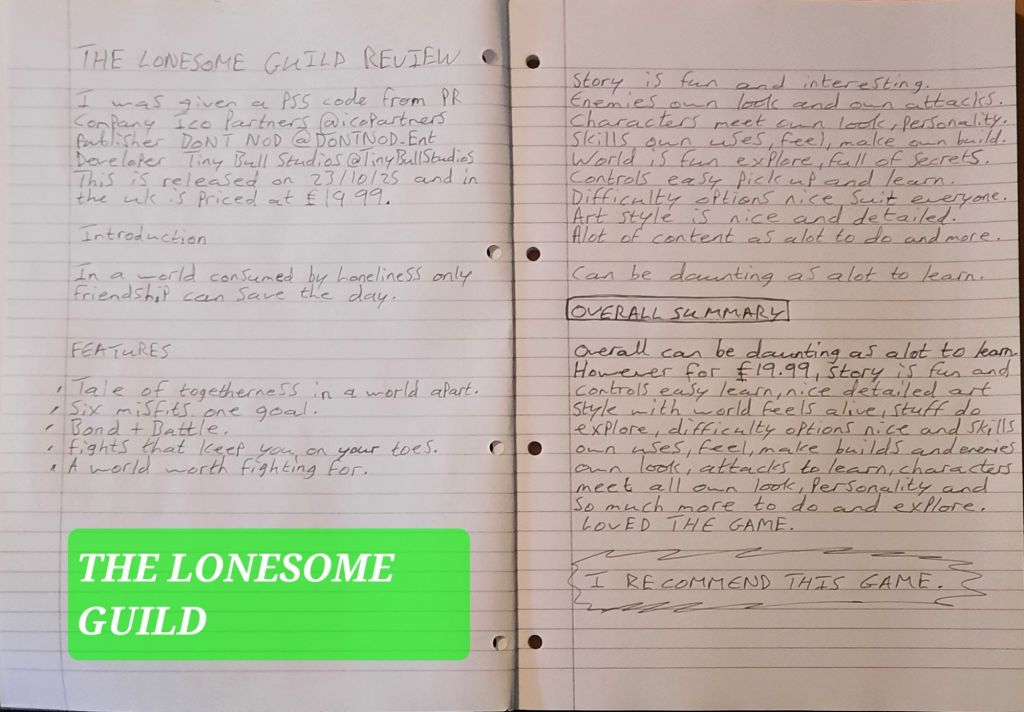 THE LONESOME GUILD REVIEW
I was given a PS5 code from PR
Company Ico Partners @icoPartners
Publisher DON'T NOD @DONTNOD_Ent
Developer Tiny Bull Studios @TinyBullStudios
This is released on 23/10/25 and in
the uk is Priced at £19.99.
Introduction
In a world consumed by Loneliness only
friendship can save the day.
FEATURES
Tale of togetherness in a world apart.
Six misfits one goal.
Bond + Battle.
fights that keep you on your toes.
A world worth fighting for.
THE LONESOME
GUILD
Story is fun and interesting.
Enemies own look and own attacks.
Characters meet own look, Personality.
Skills own uses, feel, make own build.
World is fun explore, full of secrets.
Controls easy Pick up and learn.
Difficulty options nice suit everyone.
Art style is nice and detailed.
Alot of content as alot to do and more.
Can be daunting as alot to learn.
OVERALL SUMMARY
Overall can be daunting as alot to learn
However for £19.99, Story is fun and
controls easy learn, nice detailed art
style with world feels alive, stuff do
explore, difficulty options nice and skills
own uses, feel, make builds and enemies
own look, attacks to learn, characters
meet all own look, Personality and
so much more to do and explore.
LOVED THE GAME.
I RECOMMEND THIS GAME.